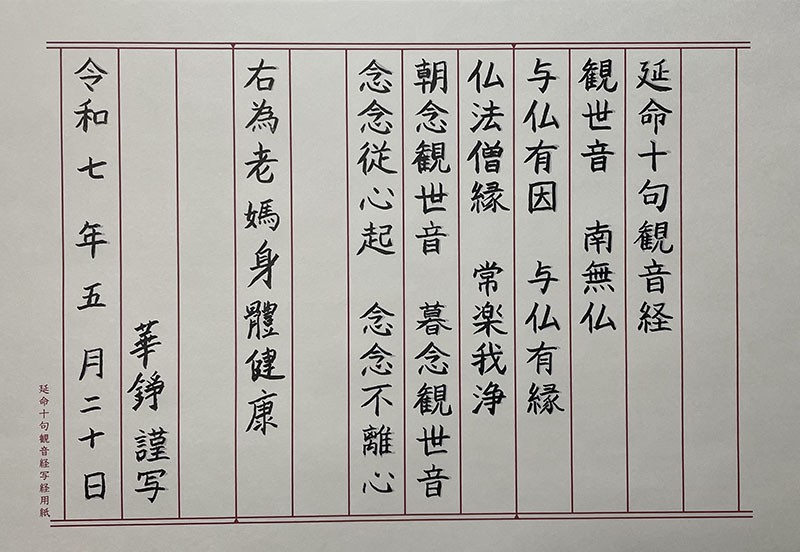 延命十句観音経
観世音　南無仏
与仏有因　与仏有縁
仏法僧縁　常楽我浄
朝念観世音　暮念観世音
念念従心起　念念不離心
右為老媽身體健康
華錚謹写
令和七年五月二十日
延命十句観音経写経用紙